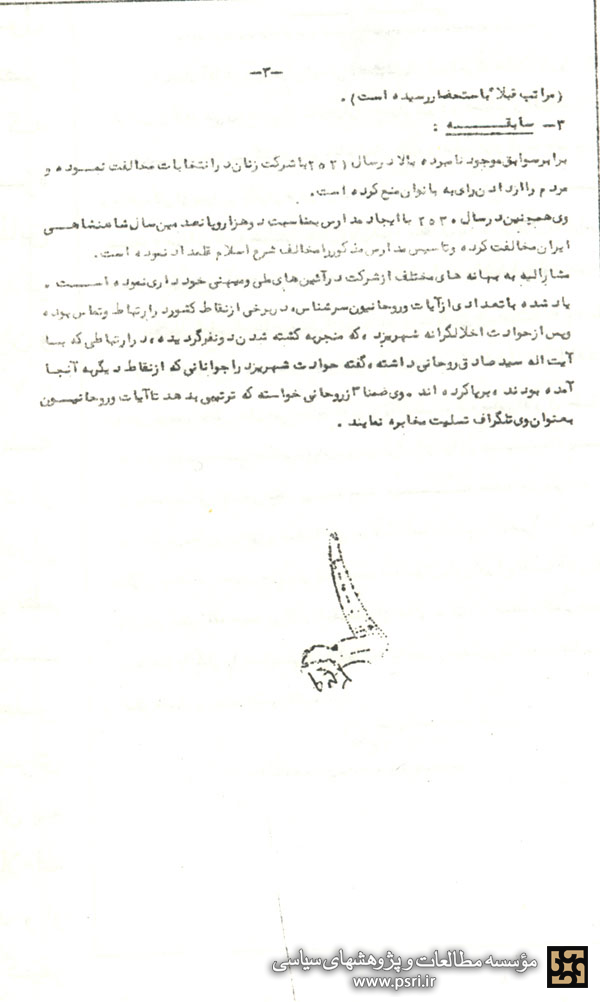 -۳-
(مراتب قبلا" باستحضاررسیده است) .
۳- سابقـــــه :
برابرسوابق موجود نامبرده بالا درسال ۲۵۲۱ باشرکت زنان درانتخابات مخالفت نمـوده و
مردم را ازدادن رای به بانوان منع کرده است .
وی همچنین درسال ۲۵۳۰ با ایجاد مدارس بمناسبت دوهزاروپانصدمین سال شاهنشاهـــی
ایران مخالفت کرده وتاسیس مدارس مذکوررامخالف شرع اسلام قلمداد نموده است .
مشارالیه به بهانه های مختلف ازشرکت درآئین های ملی ومیهنی خودداری نموده اســـت .
یادشده باتعدادی ازآیات وروحانیون سرشناس، دربرخی ازنقاط کشوردرارتباط وتماس بوده
وپس ازحوادث اخلالگرانه شهریزد، که منجربه کشته شدن دونفرگردیده، درارتباطی که بــا
آیت اله سیدصادق روحانی داشته، گفته حوادث شهریزد راجوانانی که ازنقاط دیگربه آنجـا
آمده بودند، برپاکرده اند . وی ضمنا" ازروحانی خواسته که ترتیبی بدهد تاآیات وروحانیـون
بعنوان وی تلگراف تسلیت مخابره نمایند .
مؤسسه مطالعات و پژوهشهای سیاسی
www.psri.ir